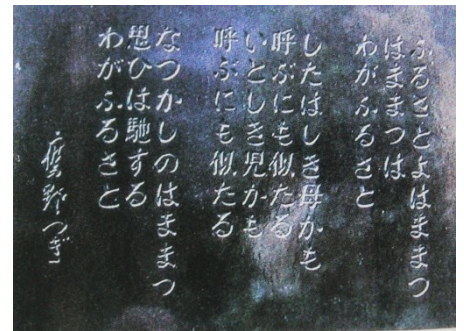 ふるさとよはままつ
はままつは
わがふるさと
したはしき母かも
呼ぶにも似たる
いとしき児かも
呼ぶにも似たる
なつかしのはままつ
思ひは馳する
わがふるさと
鷹野つぎ